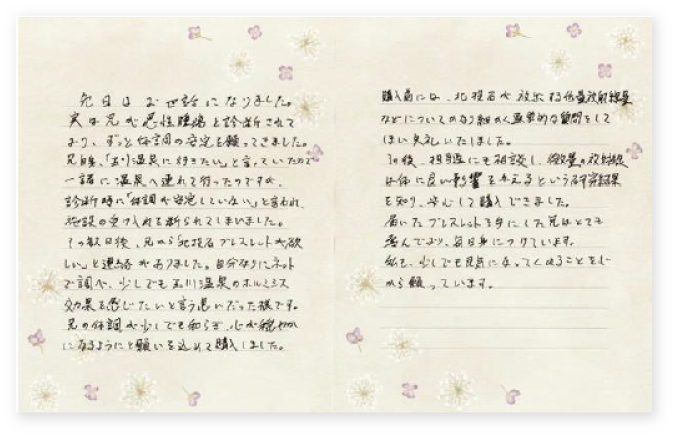 先日はお世話になりました。
実は兄が悪性腫瘍と診断されて
おり、ずっと体調の安定を願ってきました。
兄自身、「玉川温泉に行きたい」と言っていたので
一諸に温泉へ連れて行ったのですが、
診断時に「体調が安定していない」と言われ、
施設の受け入れを断られてしまいました。
その数日後、兄から「北投石ブレスレットが欲
しい」と連絡がありました。自分なりにネット
で調べ、少しでも玉川温泉のホルミシス
効果を感じたいと言う思いだった様です。
兄の体調が少しでも和らぎ、心が穏やか
になるようにと願いを込めて購入しました。
購入前には、北投石が放出する低量放射線量
などについてかなり細かく専門的な質問をして
しまい失礼いたしました。
その後、担当医にも相談し、微量の放射線
は体に良い影響を与えるという研究結果
を知り、安心して購入できました。
届いたブレスレットを手にした兄はとても
喜んでおり、毎日身につけています。
私も、少しでも元気になってくれることを心
から願っています。